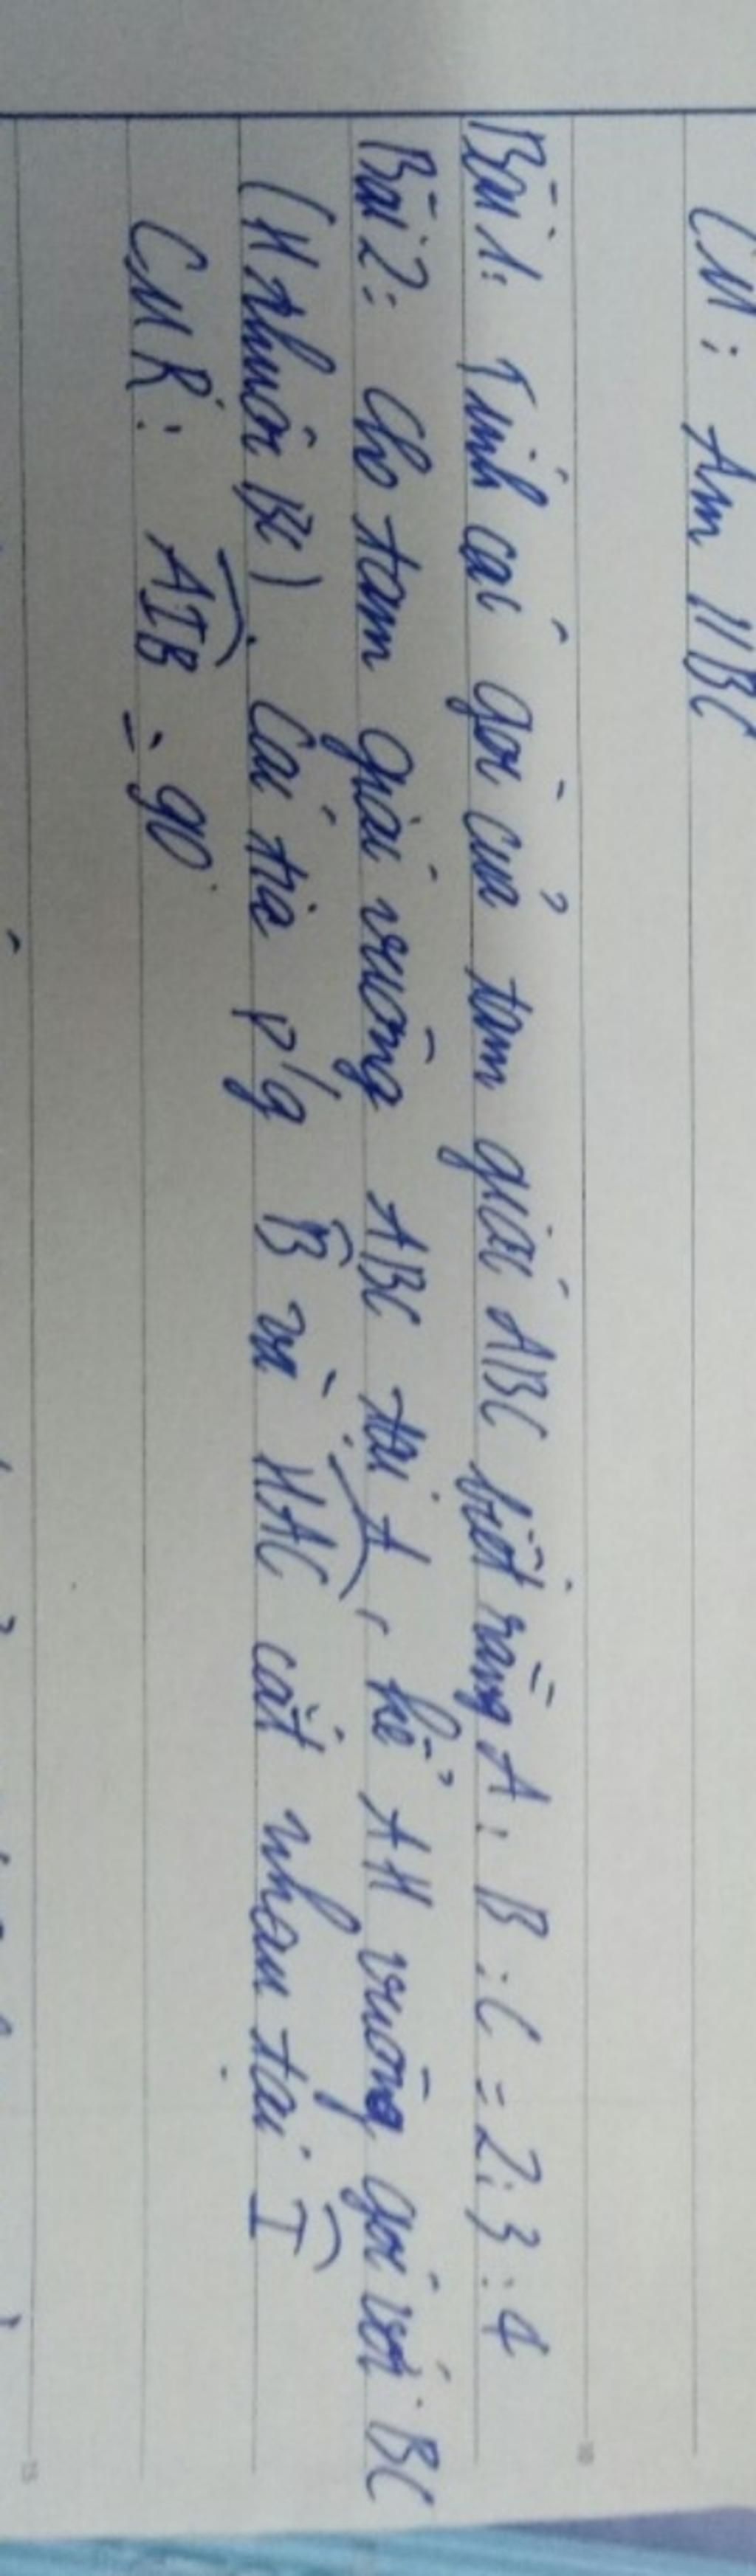 CM: Am // BC
Bài 1: Tính các góc của tam giác ABC biết rằng A : B : C = 2 : 3 : 4
Bài 2: Cho tam giác vuông ABC tại A, kẻ AH vuông góc với BC
(H thuộc BC). Các tia p/g B̂ và HAC cắt nhau tại I
CMR: AIB = 90°